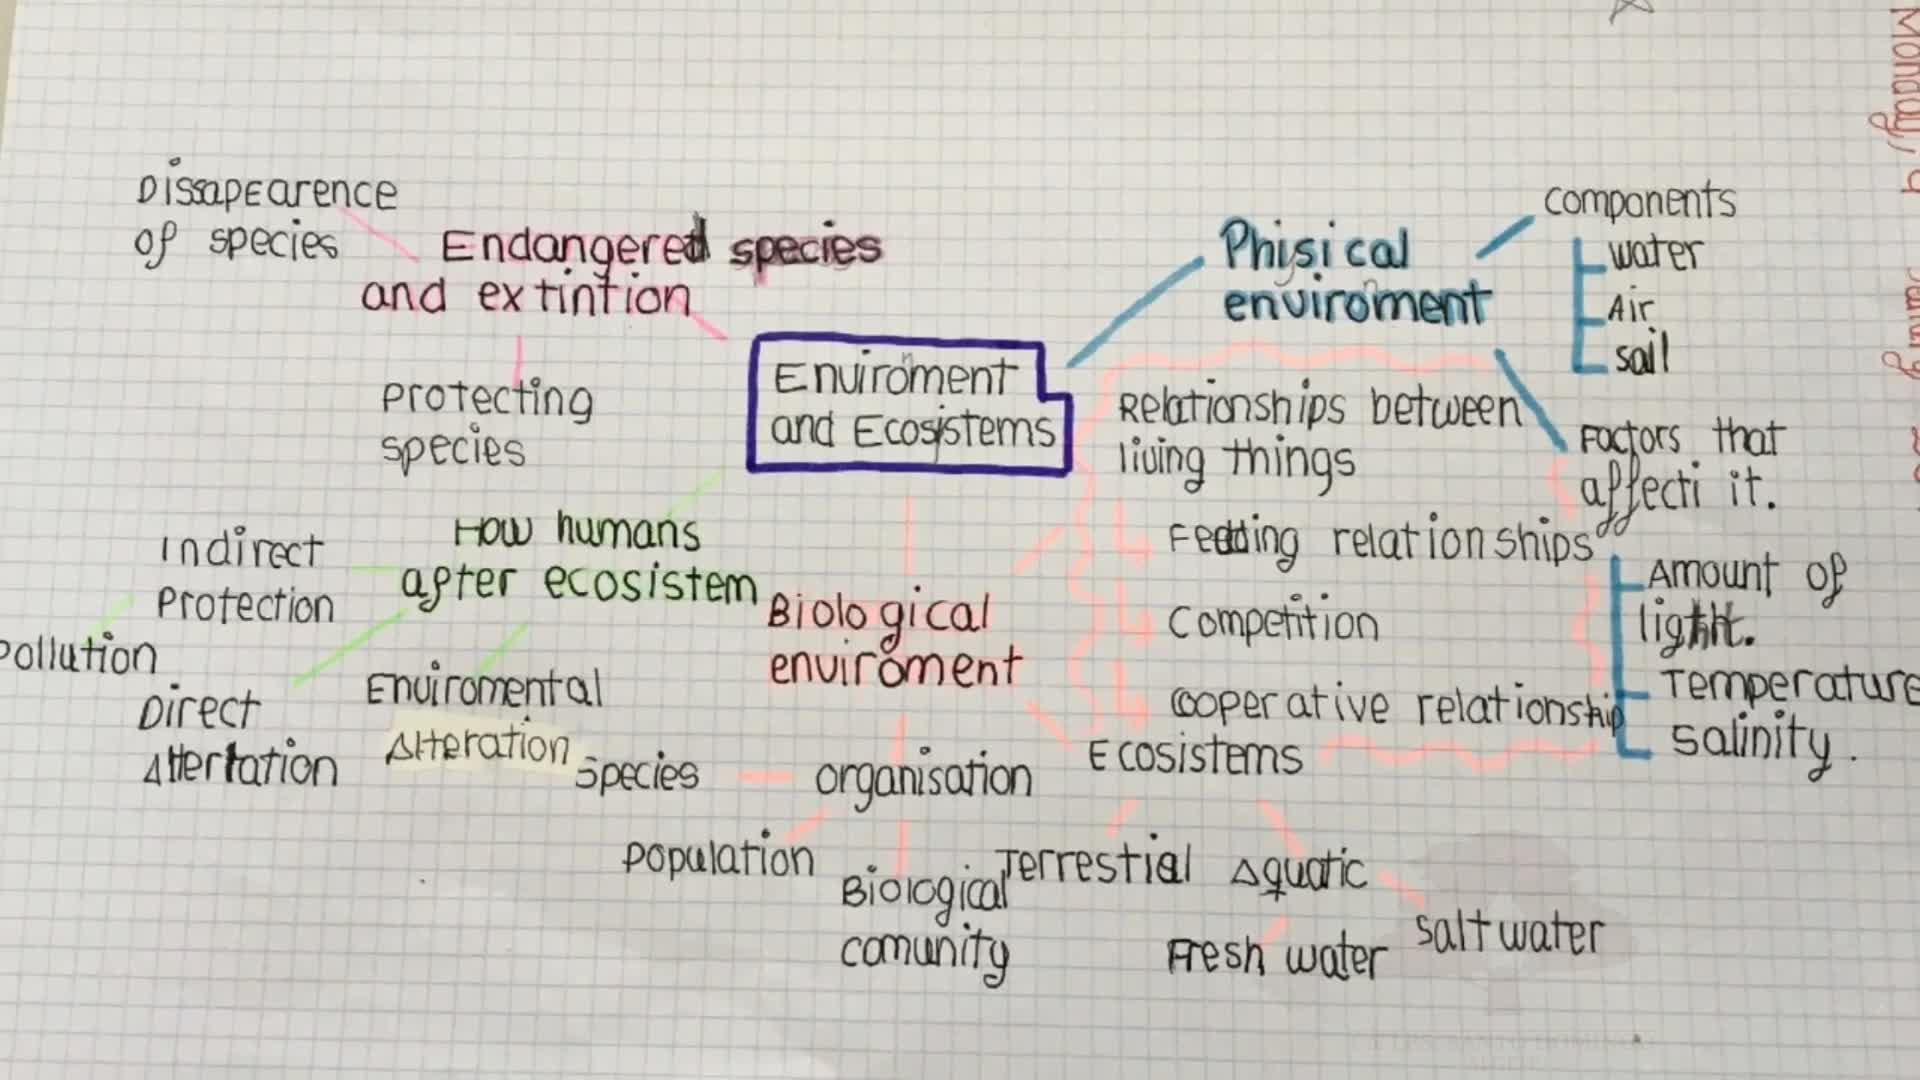 Dissapearence
of species
Endangered species
and extintion
Protecting
species
Enviroment
and Ecosistems
Phisical
enviroment
components
water
Air
soil
Factors that
affecti it.
Amount of
light.
Temperature
salinity.
Relationships between
living things
Feeding relationships
Competition
cooperative relationship
How humans
after ecosistem
Indirect
Protection
Pollution
Direct
Altertation
Enviromental
Alteration
Biological
enviroment
Species
organisation
Population
Biological
comunity
Ecosistems
Terrestial
Aquatic
Fresh water
Salt water
Monday,